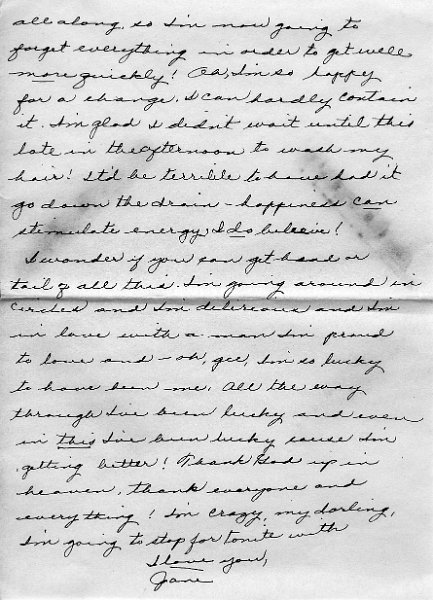 all along, so I'm now going to
forget everything in order to get well
more quickly! Oh, I'm so happy
for a change. I can hardly contain
it. I'm glad I didn't wait until this
late in the afternoon to wash my
hair! It'd be terrible to have had it
go down the drain - happiness can
stimulate energy, I do believe!
I wonder if you can get head or
tail of all this. I'm going around in
circles and I'm delirious and I'm
in love with a man I'm proud
to love and - oh, gee, I'm so lucky
to have been me. All the way
through I've been lucky and even
in this I've been lucky cause I'm
getting better! Thank God up in
heaven, thank everyone and
everything! I'm crazy, my darling,
I'm going to stop for tonite with
I love you,
Jane